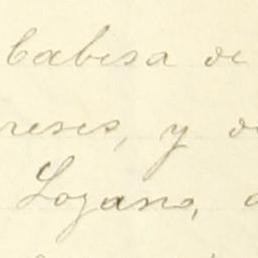 Cabesa de
reses, y de
Lozano,